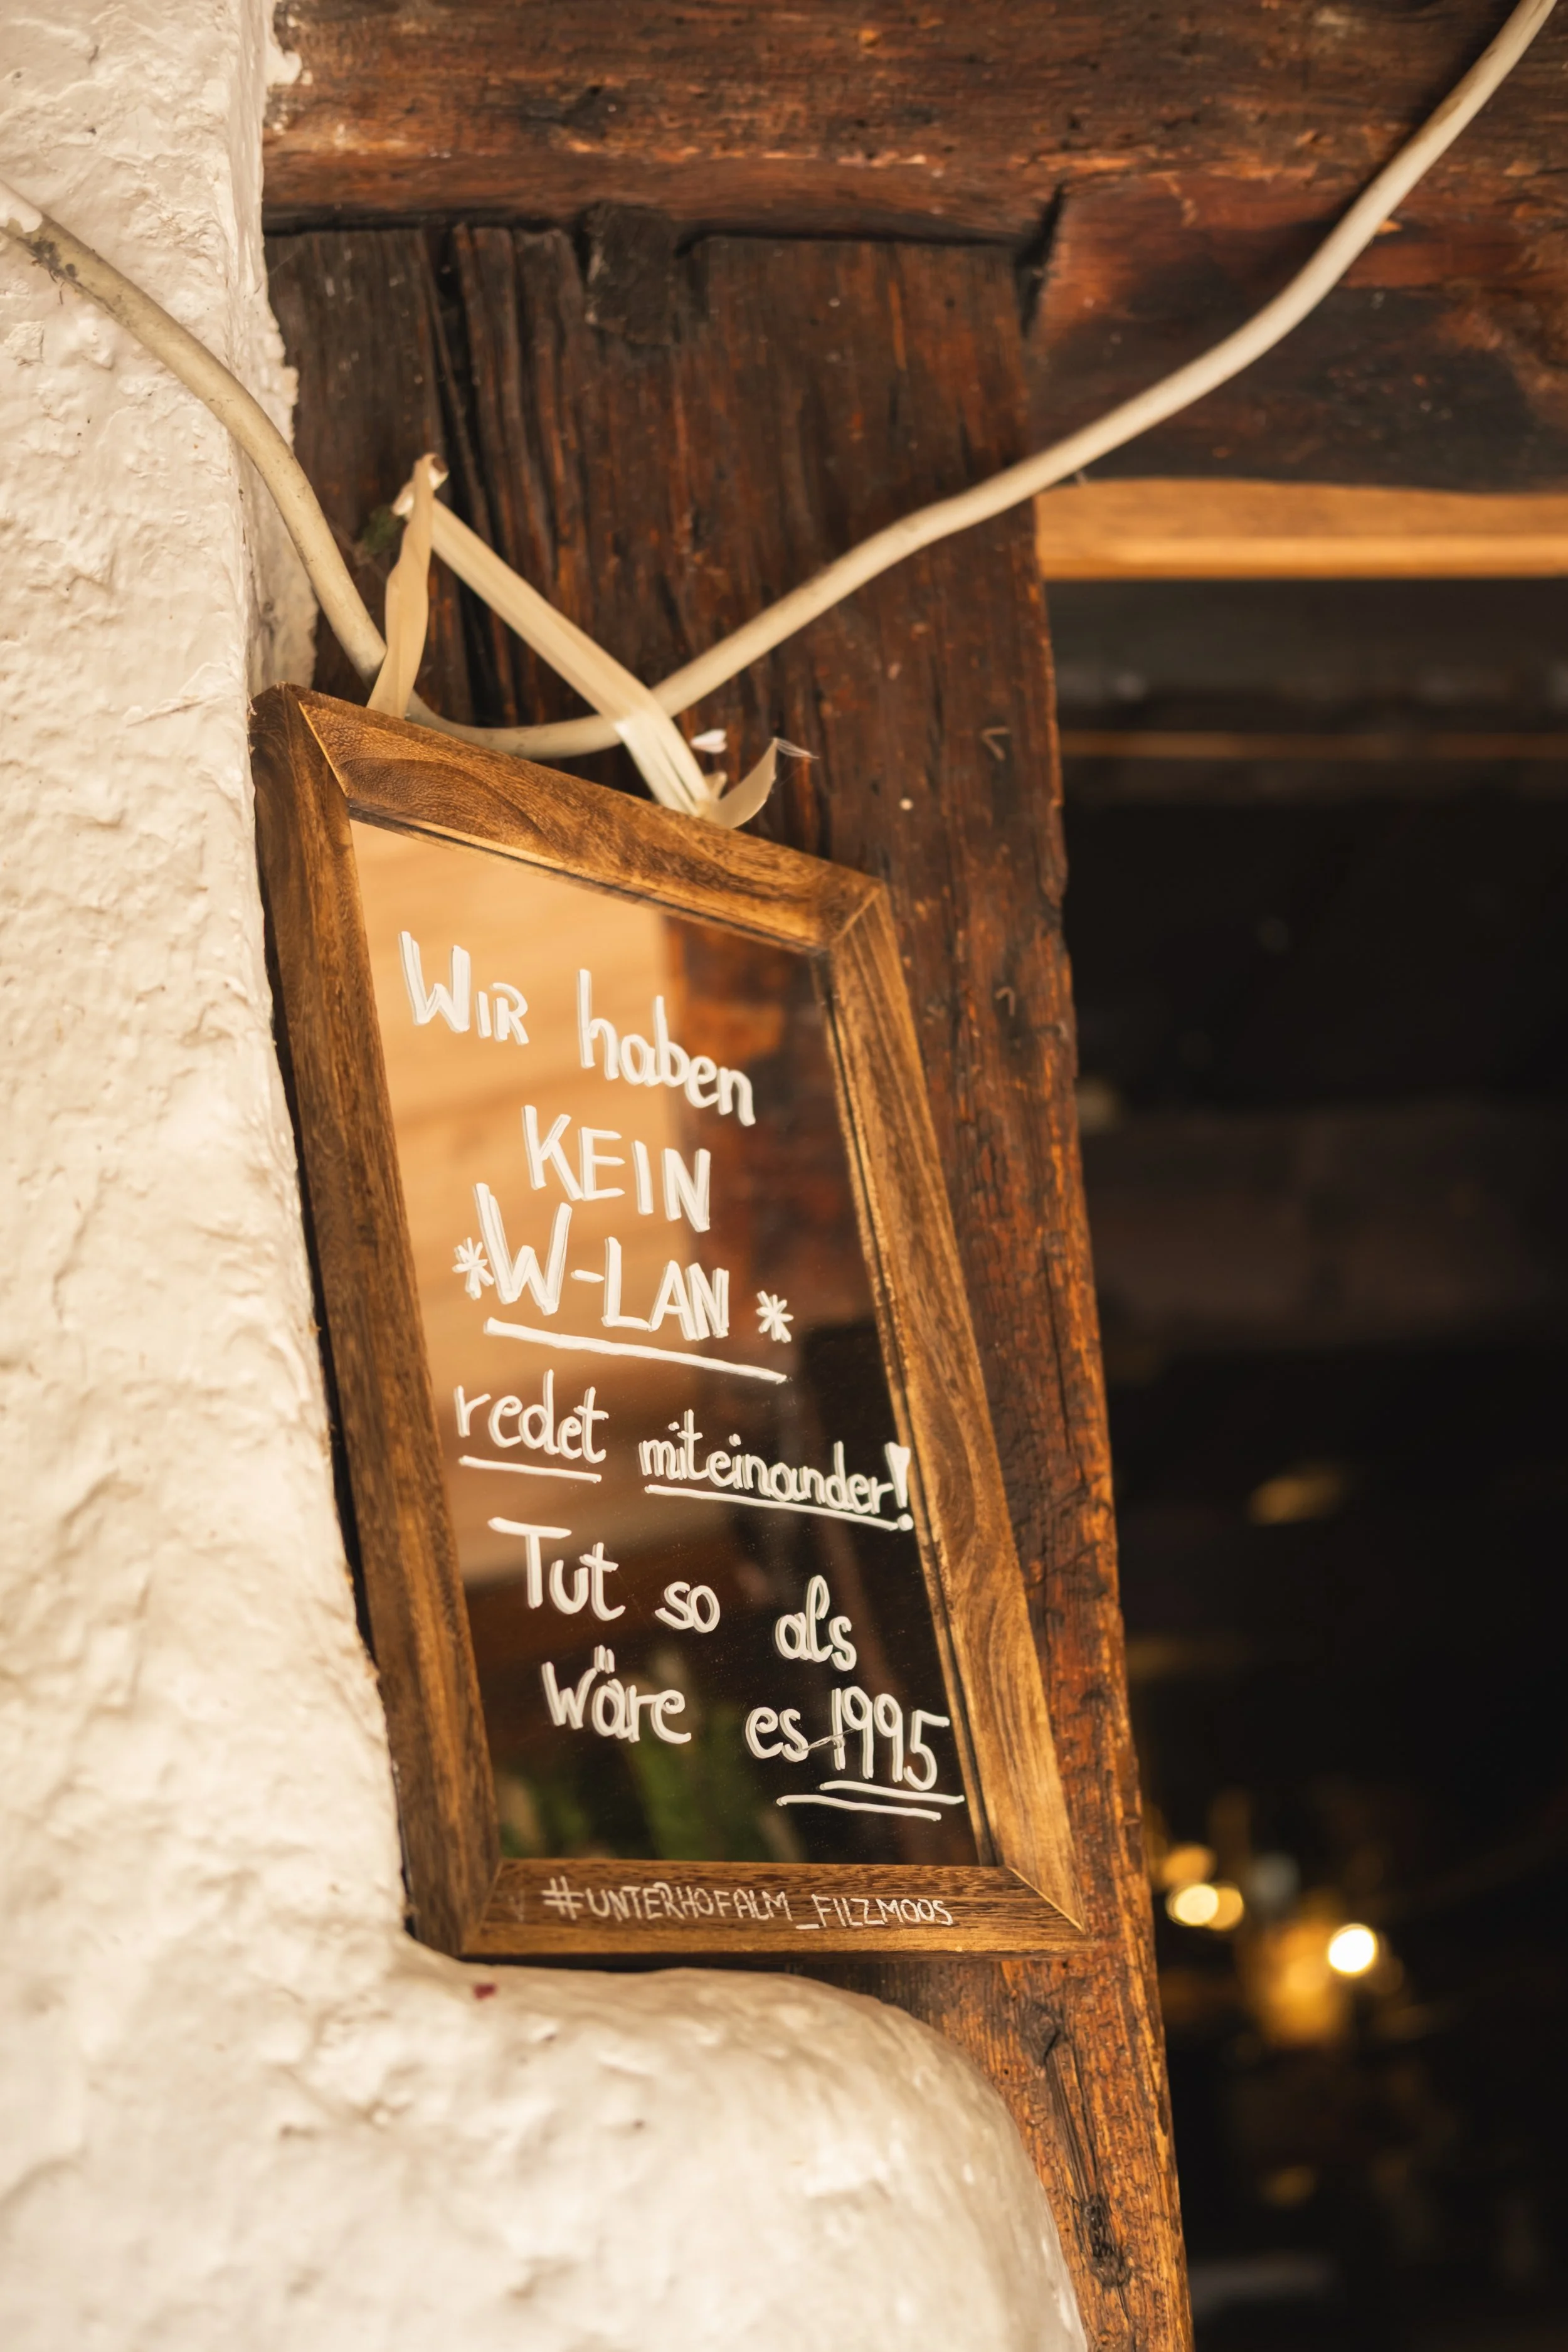 WIR haben
KEIN
*W-LAN*
redet miteinander!
Tut so als
wäre es 1995
#UNTERHOFALM_FILZMOOS